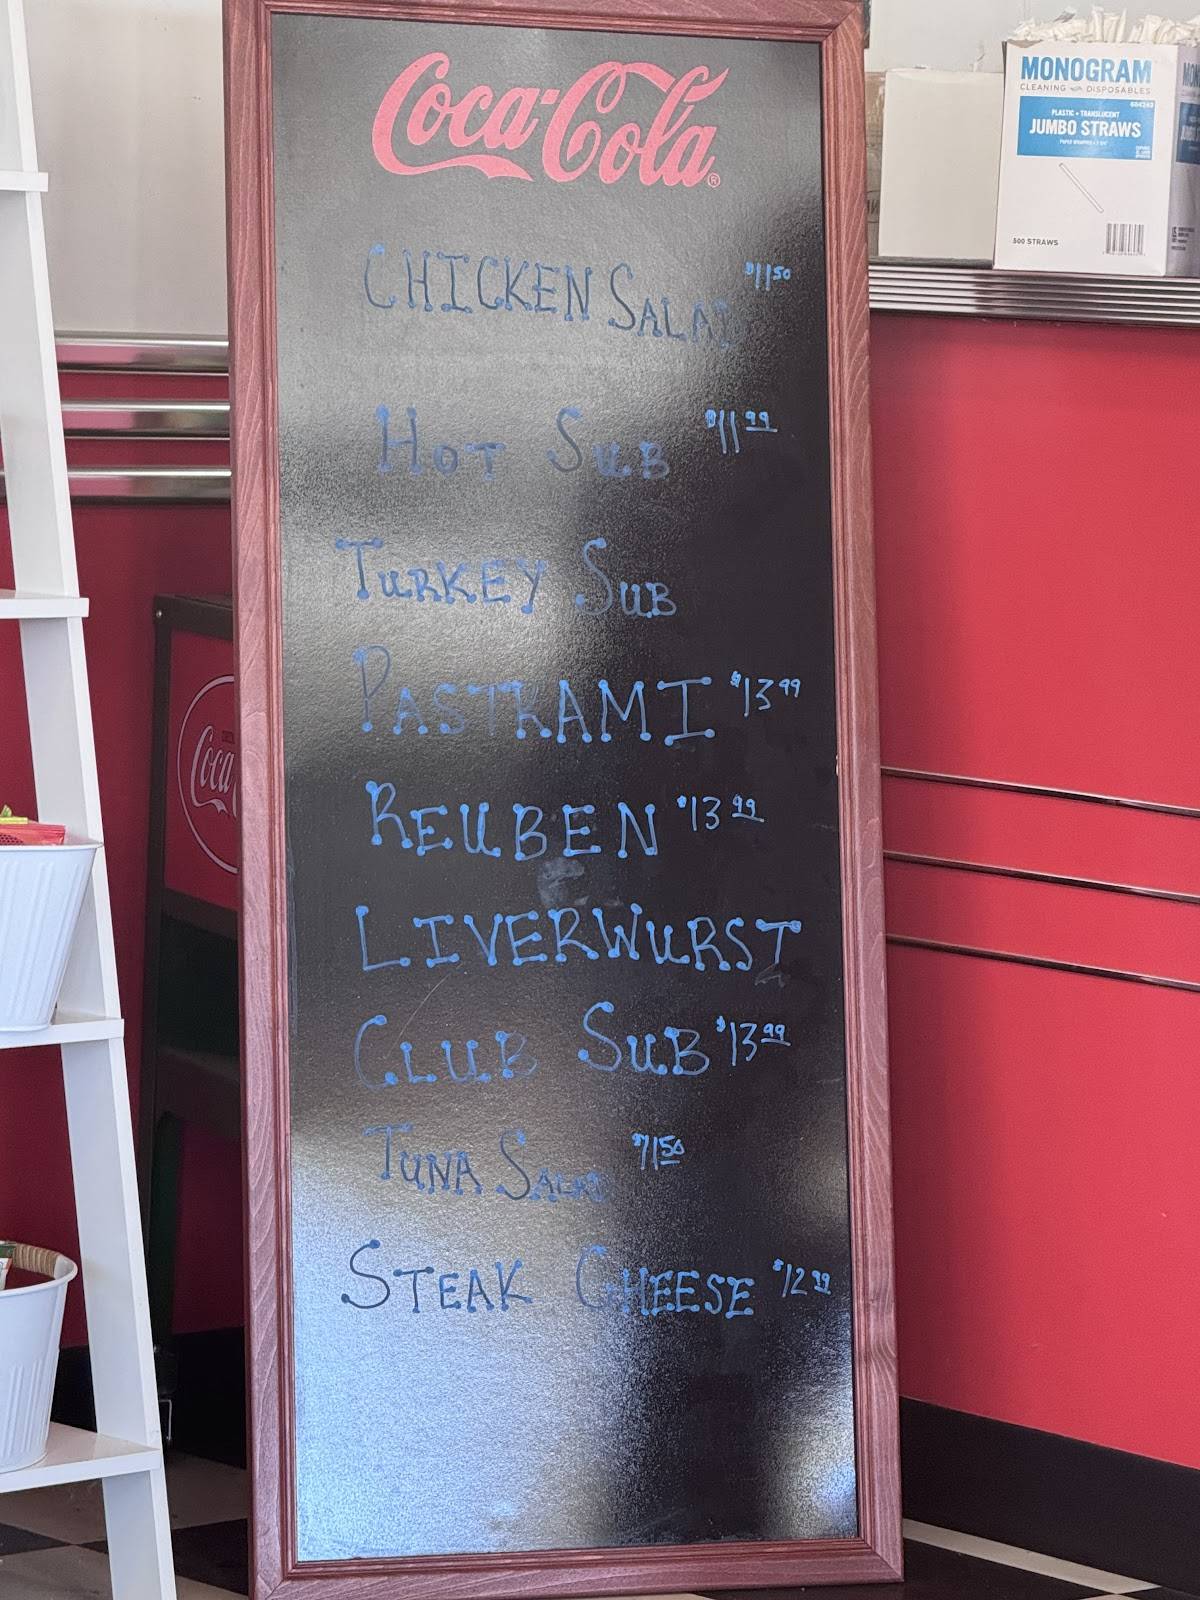 Coca-Cola®
CHICKEN SALAD $11.50
HOT SUB $11.99
TURKEY SUB
PASTRAMI $13.99
REUBEN $13.99
LIVERWURST
CLUB SUB $13.99
TUNA SALAD
STEAK CHEESE $12.99
MONOGRAM
CLEANING DISPOSABLES
PLASTIC • TRANSLUCENT
JUMBO STRAWS
500 STRAWS
Coca